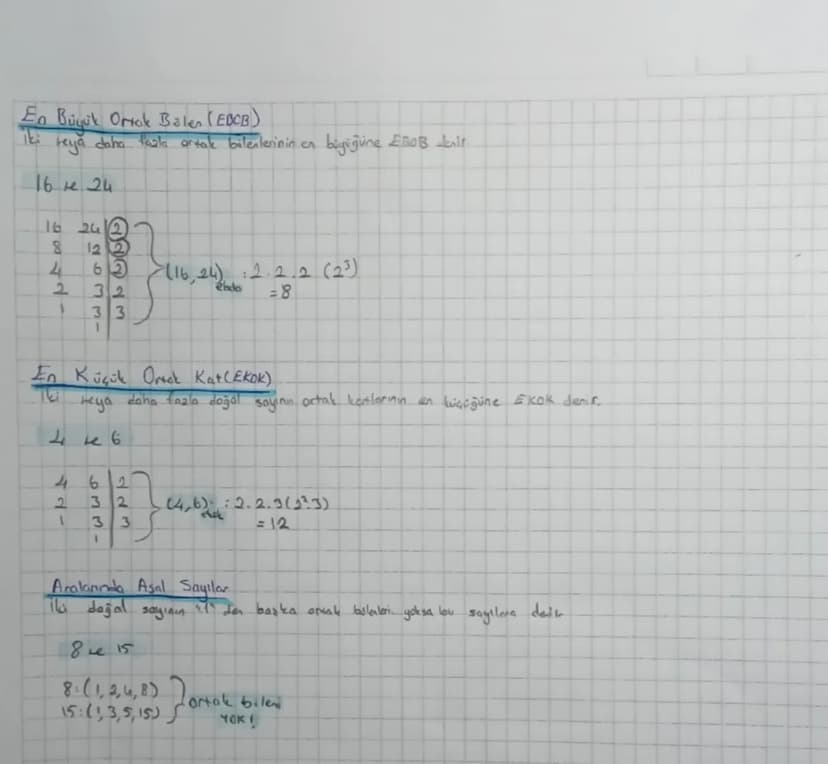 En Büyük Ortak Bölen (EBOB)
İki veya daha fazla ortak bölenlerinin en büyüğüne EBOB denir
16 ve 24
16 24 | 2
8 12 | 2
4 6 | 2 (16,24) ebob : 2.2.2 (2³)
2 3 | 2 = 8
1 3 | 3
1
En Küçük Ortak Kat (EKOK)
İki veya daha fazla doğal sayının ortak katlarının en küçüğüne EKOK denir.
4 ve 6
4 6 | 2
2 3 | 2 (4,6) ekok : 2.2.3 (2².3)
1 3 | 3 = 12
1
Aralarında Asal Sayılar
İki doğal sayının "1" den başka ortak bölenleri yoksa bu sayılara denir
8 ve 15
8:(1,2,4,8)
15:(1,3,5,15) ortak böleni
YOK!